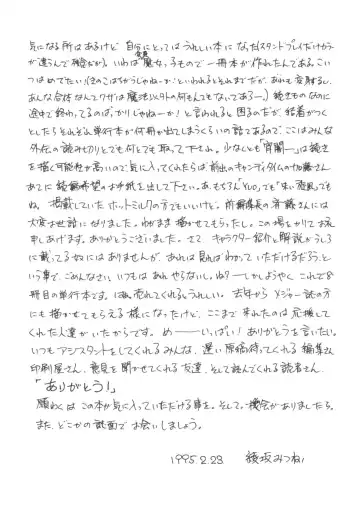 気になる所はあるけど 自分にとってはうれしい本に なった(スタンドプレイだけカラー
が違うんで嫌だが)。いわば魔女っ子もので一冊本が作れたんであるこい
つはめでたい!(きのこはちがうじゃねーか!といわれるとそれまでだが、あれも変身するし、
あんな合体なんてワザは魔法以外の何もんでもないであろー。)続きものなのに
途中で終わってるのばっかりじゃねーか!と言われると困るのだが、結着がつく
としたらそれこそ単行本が何冊か出てしまうくらいの話であるので、ここはみんな
外伝の読み切りとでも何とでも取って下さい。少なくとも「宵闇―」は続き
を描く可能性が高いので気に入ってくれたらば、前出のキャンディタイムの加藤さん
あてに続編希望のお手紙を出して下さい。あ、もちろん「YUO」でも「東い旋風」でも
ね。掲載していたホットミルクの方でもいいけど。前編集長の斉藤さんには
大変お世話になりました。わがまま描かせてもらったし。この場をかりてお礼
申しあげます。ありがとうございました。さて キャラクター紹介と解説がうしろ
に載ってる奴にはありませんが、あれは見ればわかっていただけるだろうと
いう事で、ごめんなさい いつもはあれやらないし。ね?―しかしようやく これで8
冊目の単行本です。にね、売れてくれるとうれしい。去年からメジャー誌の方
にも描かせてもらえる様になったけど、ここまで来れたのは応援して
くれた人達がいたからです。めーーいっぱい!ありがとうを言いたい。
いつもアシスタントをしてくれるみんな、遅い原稿待ってくれる編集さん
印刷屋さん、意見を聞かせてくれる友達、そして読んでくれる読者さん、
「ありがとう!」
願わくはこの本が気に入っていただける事を。そして、機会がありましたら。
また、どこかの誌面でお会いしましょう。
1995.2.23 綾坂みつね